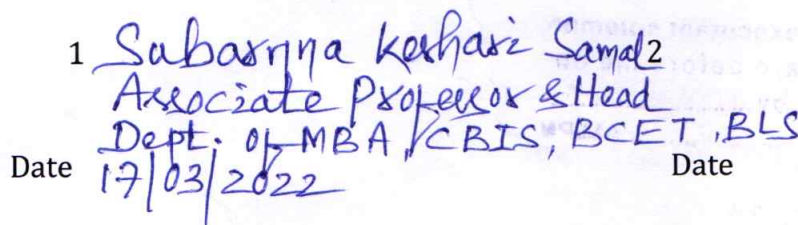 1 Subarnna Keshari Samal 2
Associate Professor & Head
Dept. of MBA, CBIS, BCET, BLS
Date 17/03/2022 Date